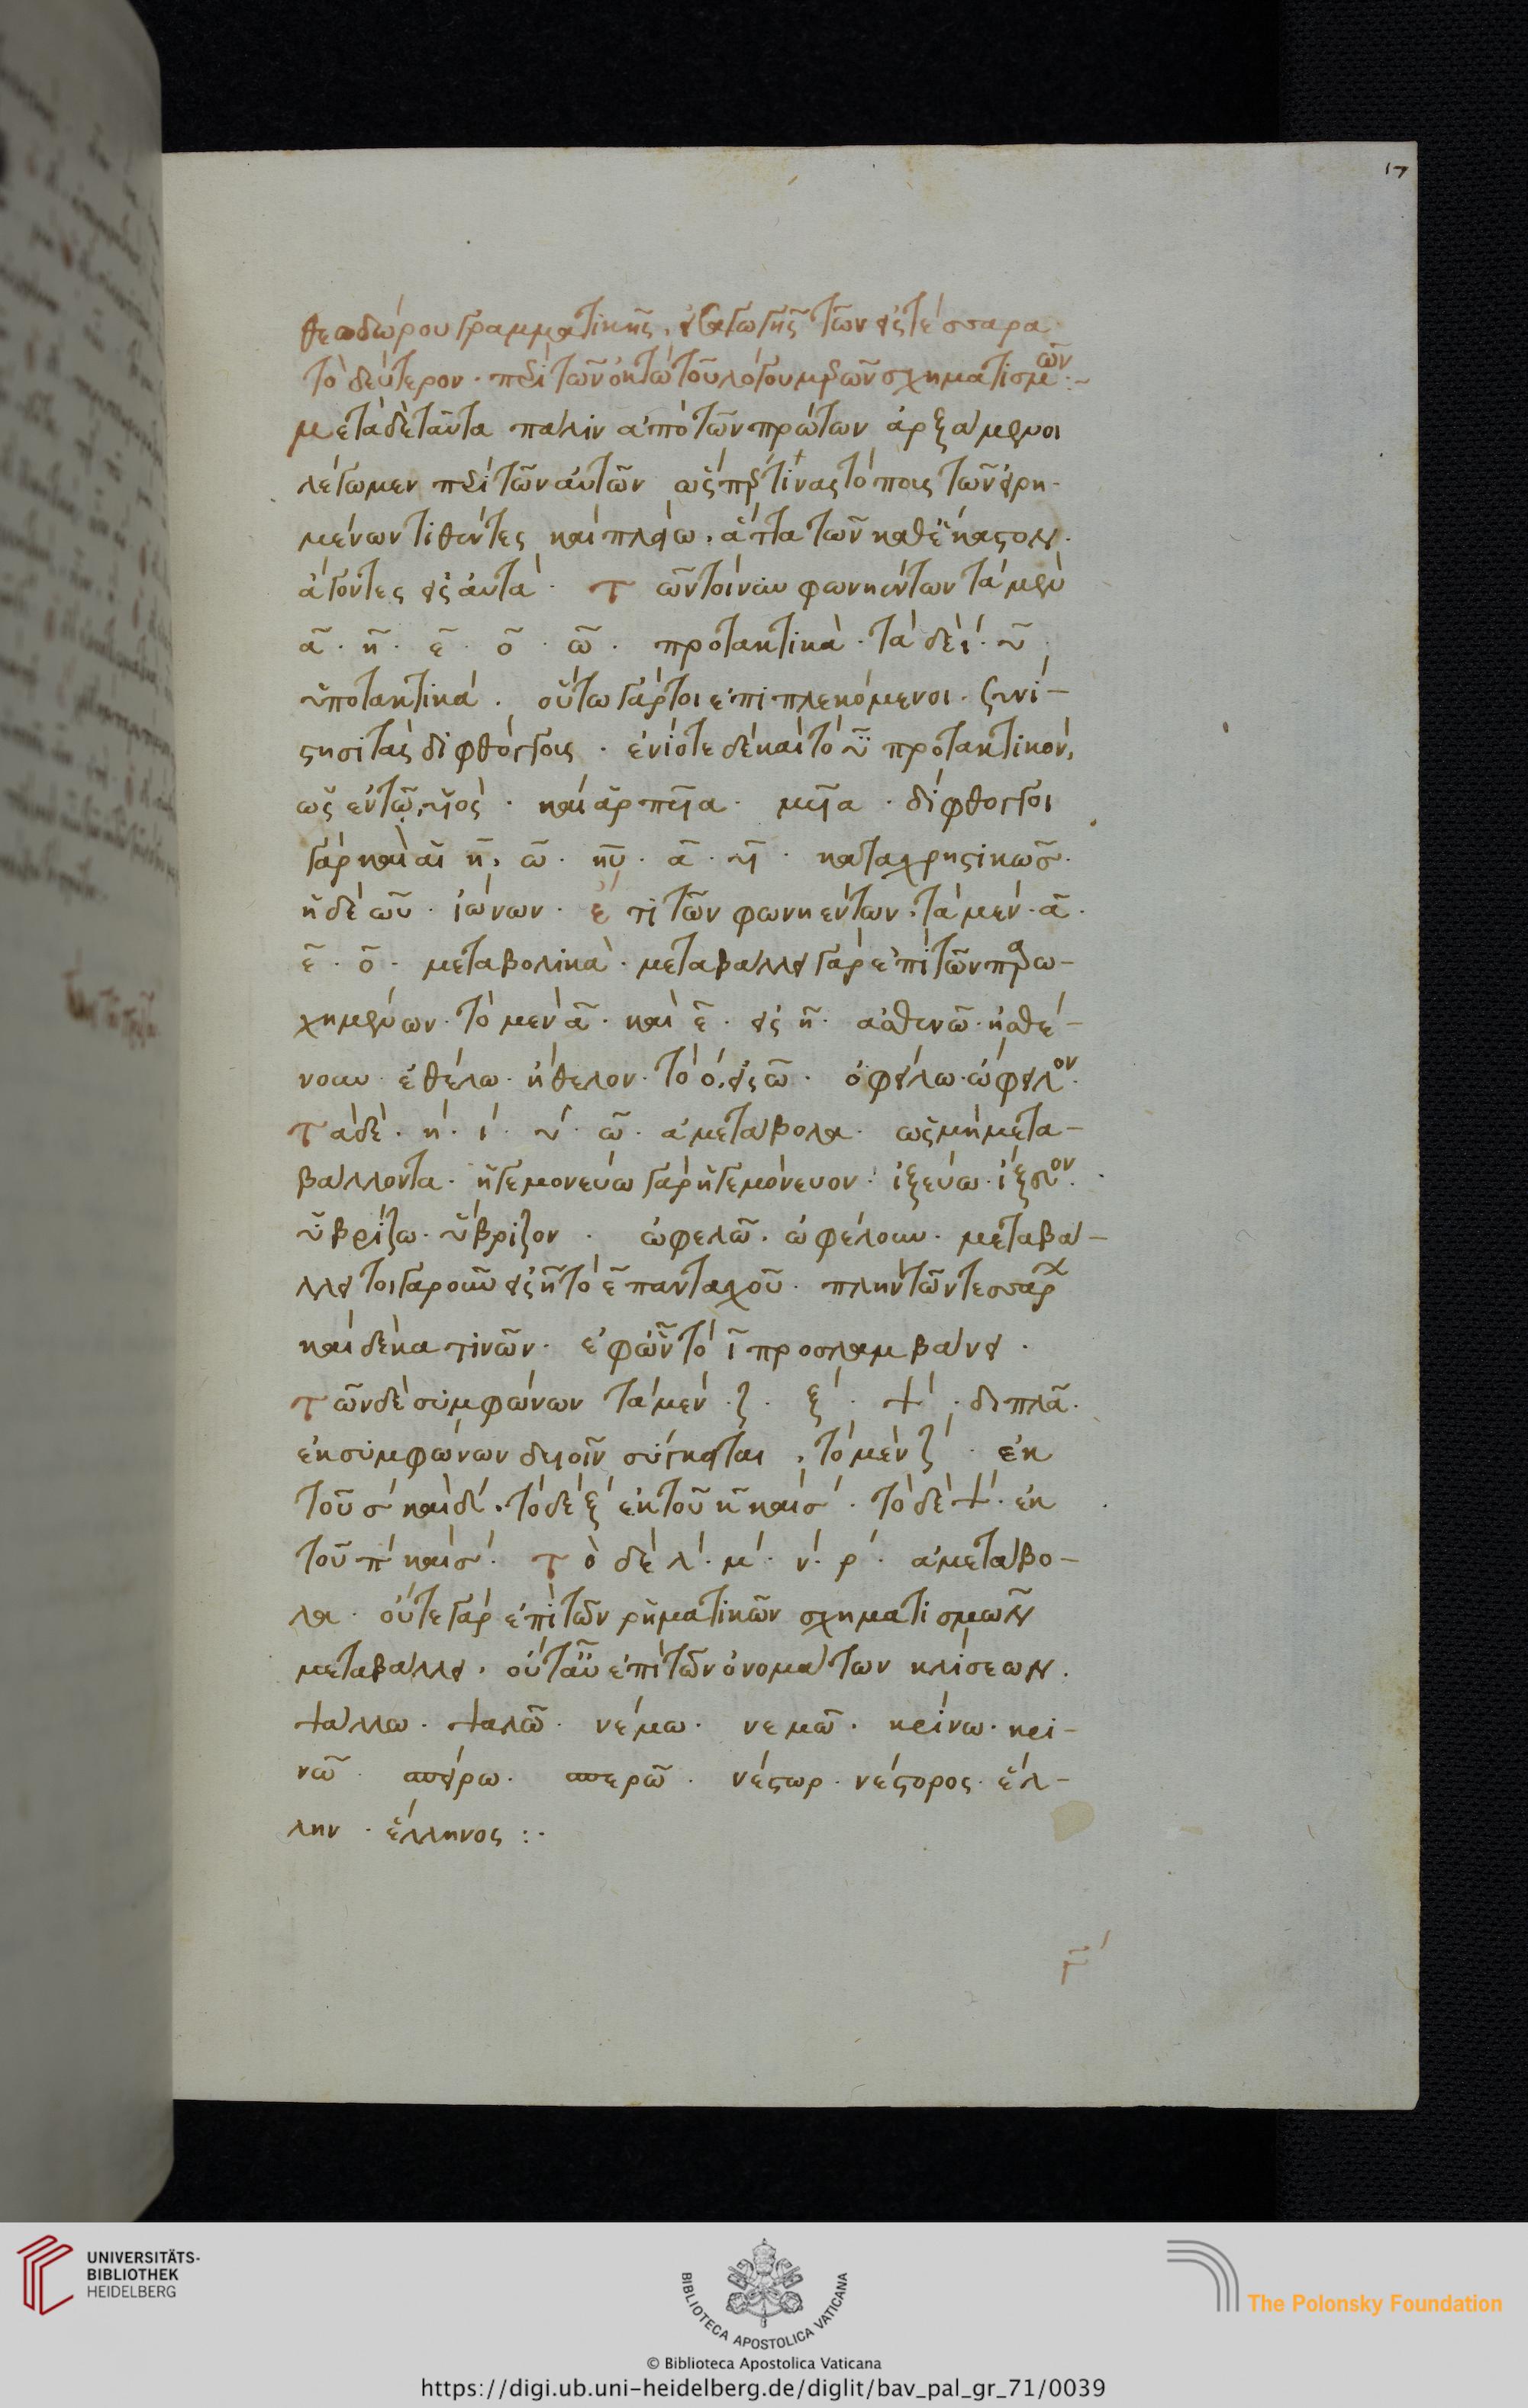 17
θεοδώρου γραμματικῆς εἰσαγωγῆς τῶν εἰς τέσσαρα
τὸ δεύτερον · περὶ τῶν ὀκτὼ τοῦ λόγου μερῶν σχηματισμῶν :~
Μετὰ δὲ ταῦτα πάλιν ἀπὸ τῶν πρώτων ἀρξάμενοι
λέγωμεν περὶ τῶν αὐτῶν ὡς πρός τινας τόπους τῶν εἰρη-
μένων τιθέντες καὶ πλείω · ἄττα τῶν καθ' ἕκαστον ·
ἄγοντες εἰς αὐτά · Τῶν τοίνυν φωνηέντων τὰ μὲν
α · η · ε · ο · ω · προτακτικὰ · τὰ δὲ ι · υ
ὑποτακτικά · οὕτω γάρ τοι ἐπιπλεκόμενοι · συνί-
στησι τὰς διφθόγγους · ἐνίοτε δὲ καὶ τὸ υ προτακτικόν,
ὡς ἐν τῷ, υἱὸς · καὶ ἅρπυια · μυῖα · δίφθογγοι
γὰρ καὶ αἱ η, ω · ηυ · α · υι · καταχρηστικῶς ·
ἡ δὲ ωυ · ἰώνων · Ἔτι τῶν φωνηέντων · τὰ μὲν · α ·
ε · ο · μεταβολικὰ · μεταβάλλει γὰρ ἐπὶ τῶν παρω-
χημένων · τὸ μὲν α · καὶ ε · εἰς η · ἀσθενῶ · ἠσθέ-
νουν · ἐθέλω · ἤθελον · τὸ ο, εἰς ω · ὀφείλω · ὤφειλον ·
Τὰ δὲ · η · ι · υ · ω · ἀμετάβολα · ὡς μὴ μετα-
βάλλοντα · ἡγεμονεύω γὰρ ἡγεμόνευον · ἰξεύω · ἴξευον ·
ὑβρίζω · ὕβριζον · ὠφελῶ · ὠφέλουν · μεταβά-
λλει τοιγαροῦν εἰς η τὸ ε πανταχοῦ · πλὴν τῶν τεσσαρες
καίδεκα τινῶν · ἐφ' ὧν τὸ ι προσλαμβάνει ·
Τῶν δὲ συμφώνων τὰ μὲν · ζ · ξ · ψ · διπλᾶ ·
ἐκ συμφώνων δυοῖν σύγκειται, τὸ μὲν ζ · ἐκ
τοῦ σ καὶ δ · τὸ δὲ ξ ἐκ τοῦ κ καὶ σ · τὸ δὲ ψ · ἐκ
τοῦ π καὶ σ · Τὸ δὲ λ · μ · ν · ρ · ἀμετάβο-
λα · οὔτε γὰρ ἐπὶ τῶν ῥηματικῶν σχηματισμῶν
μεταβάλλει · οὔτ' αὖ ἐπὶ τῶν ὀνομάτων κλίσεων ·
ψάλλω · ψαλῶ · νέμω · νεμῶ · κρίνω · κρι-
νῶ · σπείρω · σπερῶ · νέστωρ · νέστορος · ἕλ-
λην · ἕλληνος : ·
UNIVERSITÄTS-
BIBLIOTHEK
HEIDELBERG
BIBLIOTECA APOSTOLICA VATICANA
The Polonsky Foundation
© Biblioteca Apostolica Vaticana
https://digi.ub.uni-heidelberg.de/diglit/bav_pal_gr_71/0039